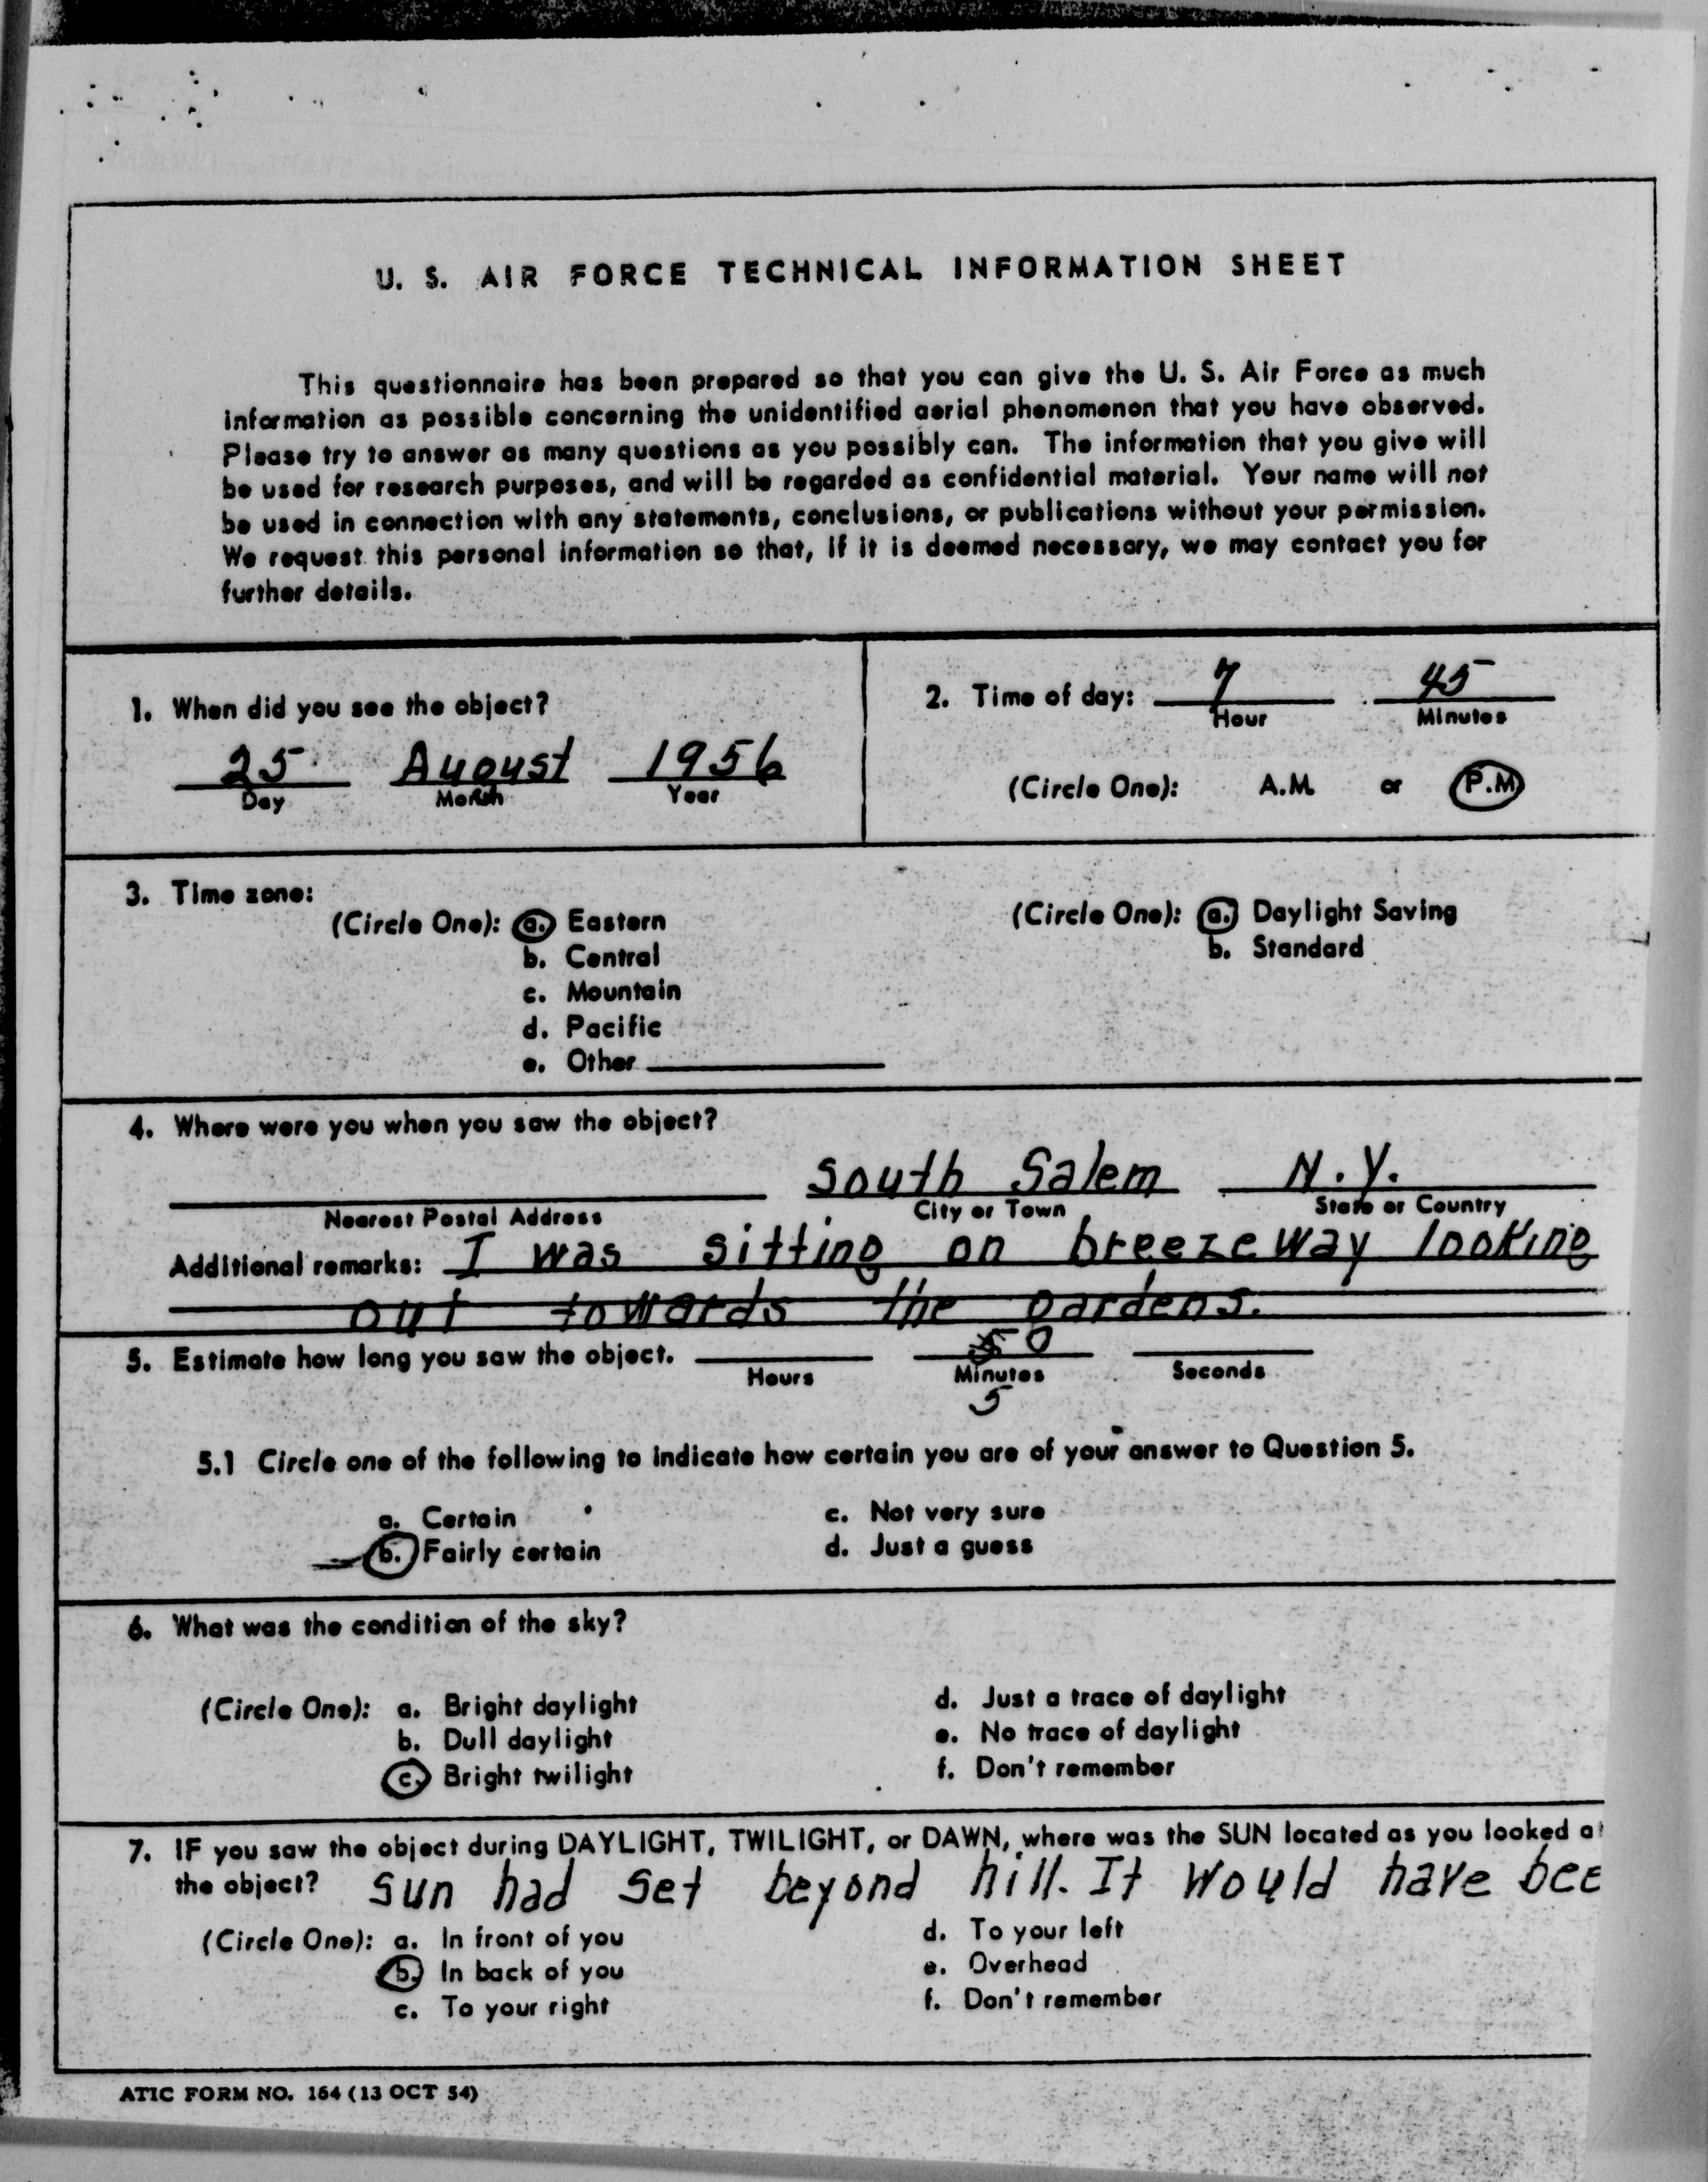 U. S. AIR FORCE TECHNICAL INFORMATION SHEET
This questionnaire has been prepared so that you can give the U. S. Air Force as much
information as possible concerning the unidentified aerial phenomenon that you have observed.
Please try to answer as many questions as you possibly can. The information that you give will
be used for research purposes, and will be regarded as confidential material. Your name will not
be used in connection with any statements, conclusions, or publications without your permission.
We request this personal information so that, if it is deemed necessary, we may contact you for
further details.
1. When did you see the object?
25 August 1956
Day Month Year
2. Time of day: 7 45
Hour Minutes
(Circle One): A.M. or P.M
3. Time zone:
(Circle One): a. Eastern
b. Central
c. Mountain
d. Pacific
e. Other
(Circle One): a. Daylight Saving
b. Standard
4. Where were you when you saw the object?
South Salem N.Y.
Nearest Postal Address City or Town State or Country
Additional remarks: I was sitting on breezeway looking
out towards the gardens.
5. Estimate how long you saw the object. 50
Hours Minutes Seconds
5
5.1 Circle one of the following to indicate how certain you are of your answer to Question 5.
a. Certain
b. Fairly certain
c. Not very sure
d. Just a guess
6. What was the condition of the sky?
(Circle One): a. Bright daylight
b. Dull daylight
c. Bright twilight
d. Just a trace of daylight
e. No trace of daylight
f. Don't remember
7. IF you saw the object during DAYLIGHT, TWILIGHT, or DAWN, where was the SUN located as you looked at
the object? Sun had set beyond hill. It would have bee
(Circle One): a. In front of you
b. In back of you
c. To your right
d. To your left
e. Overhead
f. Don't remember
ATIC FORM NO. 164 (13 OCT 54)